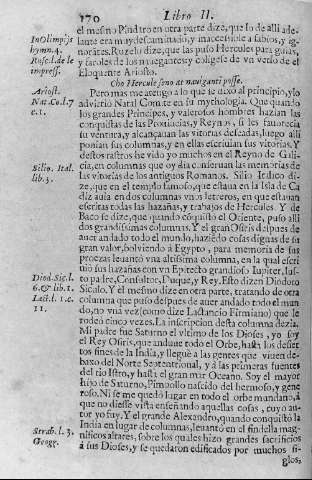 170 Libro II.
el mesmo Pindaro en otra parte dize, que lo de alli ade-
In Olimpijs
lante era muy descaminado, y inaccessible a sabios, y ig-
hymn. 4.
norãtes. Ruzelo dize, que las puso Hercules para guias,
Rusc. l. de le
y faroles de los nauegantes; y coligele de vn verso de el
impress.
Eloquente Ariosto.
Che Hercule seno at nauiganti posse.
Ariost.
Pero mas me atengo a lo que se dixo al principio, y lo
Nat. Co. l. 7
advirtio Natal Comite en su mythologia. Que quando
c. 1.
los grandes Principes, y valerosos hombres hazian las
conquistas de las Prouincias, y Reynos, si les fauorecia
su ventura, y alcançauan las vitorias desseadas, luego alli
ponian sus columnas, y en ellas escriuian sus vitorias. Y
destos rastros he visto yo muchos en el Reyno de Gali-
cia, en columnas que oy dia conseruan las memorias de
Silio. Ital.
las vitorias de los antiguos Romanos. Silio Italico di-
lib. 3.
ze, que en el templo famoso, que estaua en la Isla de Ca
diz auia en dos columnas vnos letreros, en que estauan
escritas todas las hazañas, y trabajos de Hercules. Y de
Baco se dize, que quando cõquistò el Oriente, puso alli
dos grandissimas columnas. Y el gran Osiris despues de
auer andado todo el mundo, haziẽdo cosas dignas de su
gran valor, bolviendo à Egypto, para memoria de sus
proezas leuantò vna altissima columna, en la qual escri
tio sus hazañas con vn Epitecto grandioso Iupiter, Ius-
Diod. Sic. l.
to padre, Consultor, Duque, y Rey. Esto dizen Diodoro
6. & lib. 1.
Siculo. Y el mesmo dize en otra parte, tratando de otra
Lact. l. 1. c.
columna que puso despues de auer andado todo el mun
11.
do, no vna vez (como dize Lactancio Firmiano) que le
rodeò cinco vezes. La inscripcion desta columna dezia.
Mi padre fue Saturno el vltimo de los Dioses, yo soy
el Rey Osiris, que anduue todo el Orbe, hasta los desier
tos fines de la India, y lleguè a las gentes que viuen de-
baxo del Norte Septentrional, y à las primeras fuentes
del rio Istro, y hasta el gran mar Oceano. Soy el mayor
hijo de Saturno, Pimpollo nascido del hermoso, y gene
roso. Ni se me quedò lugar en todo el orbe mundano, à
que no diesse vista enseñando aquellas cosas, cuyo au-
tor yo fuy. Y el grande Alexandro, quando conquistò la
India en lugar de columnas, leuantò en el fin della mag-
Strab. l. 3.
nificos altares, sobre los quales hizo grandes sacrificios
Geogr.
à sus Dioses, y se quedaron edificados por muchos si-
glos.